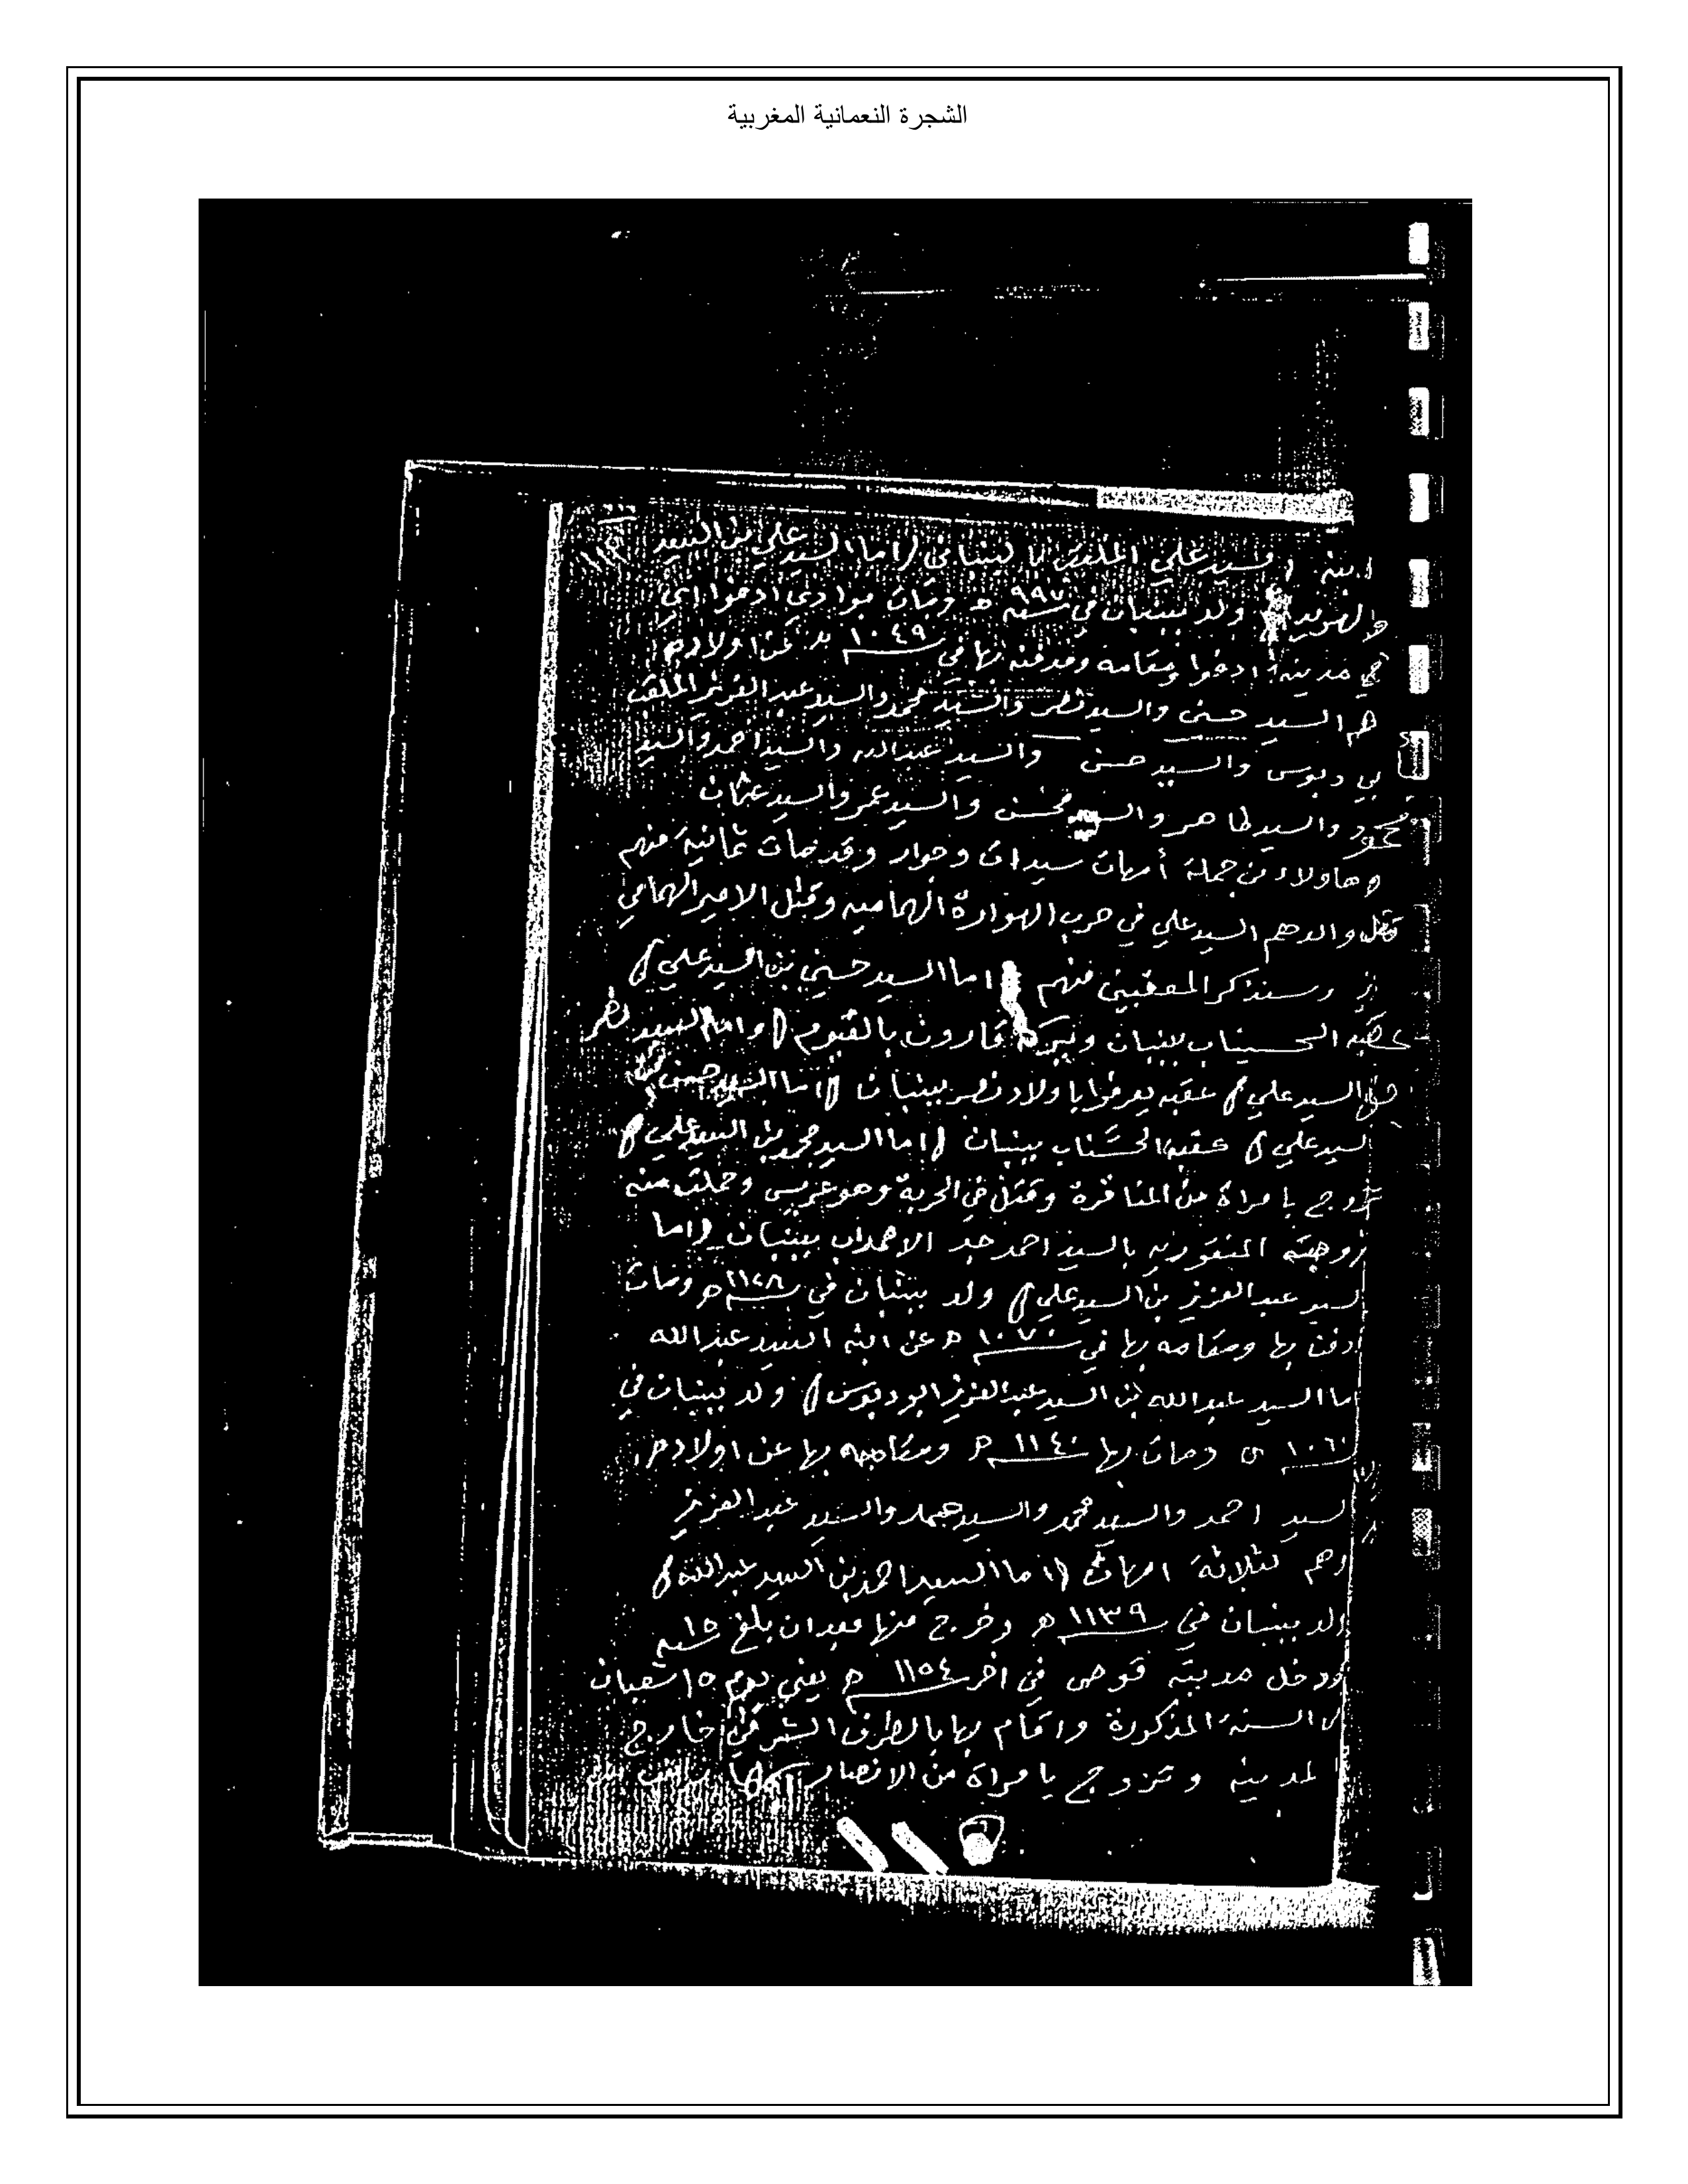 الشجرة النعمانية المغربية
ابنه السيد علي الملقب بالبنباني (اما السيد علي بن السيد
ولد ببنبان في سنة ٩٩٧ ه ومات ادفوا
مدينة ادفوا ومقامه ومدفنه بها في سنة ١٠٤٩ عن اولاده
هم السيد حسين والسيد نصر والسيد محمد والسيد عبد العزيز الملقب
بي دبوس والسيد حسن والسيد عبد الله والسيد احمد والسيد
والسيد طاهر والسيد محسن والسيد عمر والسيد عثمان
وهاولاء من جملة أمهات سيدات وجوار وقد مات ثمانية منهم
قتل والدهم السيد علي في حرب الهوارة الهماميه وقبل الامير الهمامي
وسنذكر المعقبين منهم اما السيد حسين بن السيد علي)
عقبه الحسيناب ببنبان وبركة قارون بالفيوم (واما السيد نصر
السيد علي) عقبه يعرفوا باولاد نصر ببنبان (اما السيد حسن بن
لسيد علي) عقبه الحسناب ببنبان (اما السيد محمد بن السيد علي)
تزوج بامراة من المناقرة وقتل في الحربة وهو عريس وحملت منه
زوجته المنقوريه بالسيد احمد جد الاحمداب ببنبان (اما
لسيد عبد العزيز بن السيد علي) ولد ببنبان في سنة ١١٢٨ ه ومات
ادفن بها ومقامه بها في سنة ١٠٧٠ ه عن ابنه السيد عبد الله
ما السيد عبد الله بن السيد عبد العزيز ابو دبوس) ولد ببنبان في
١٠٦٠ ومات بها سنة ١١٤٠ ه ومقامه بها عن اولاده
لسيد احمد والسيد محمد والسيد حماد والسيد عبد العزيز
وهم لثلاثة امهات (اما السيد احمد بن السيد عبد الله)
ولد ببنبان في سنة ١١٣٩ ه وخرج منها بعد ان بلغ ١٥ سنة
ودخل مدينة قوص في اخر سنة ١١٥٤ ه يعني يوم ١٥ شعبان
السنة المذكورة واقام بها بالطرف الشرقي خارج
لمدينة وتزوج بامراة من الانصار